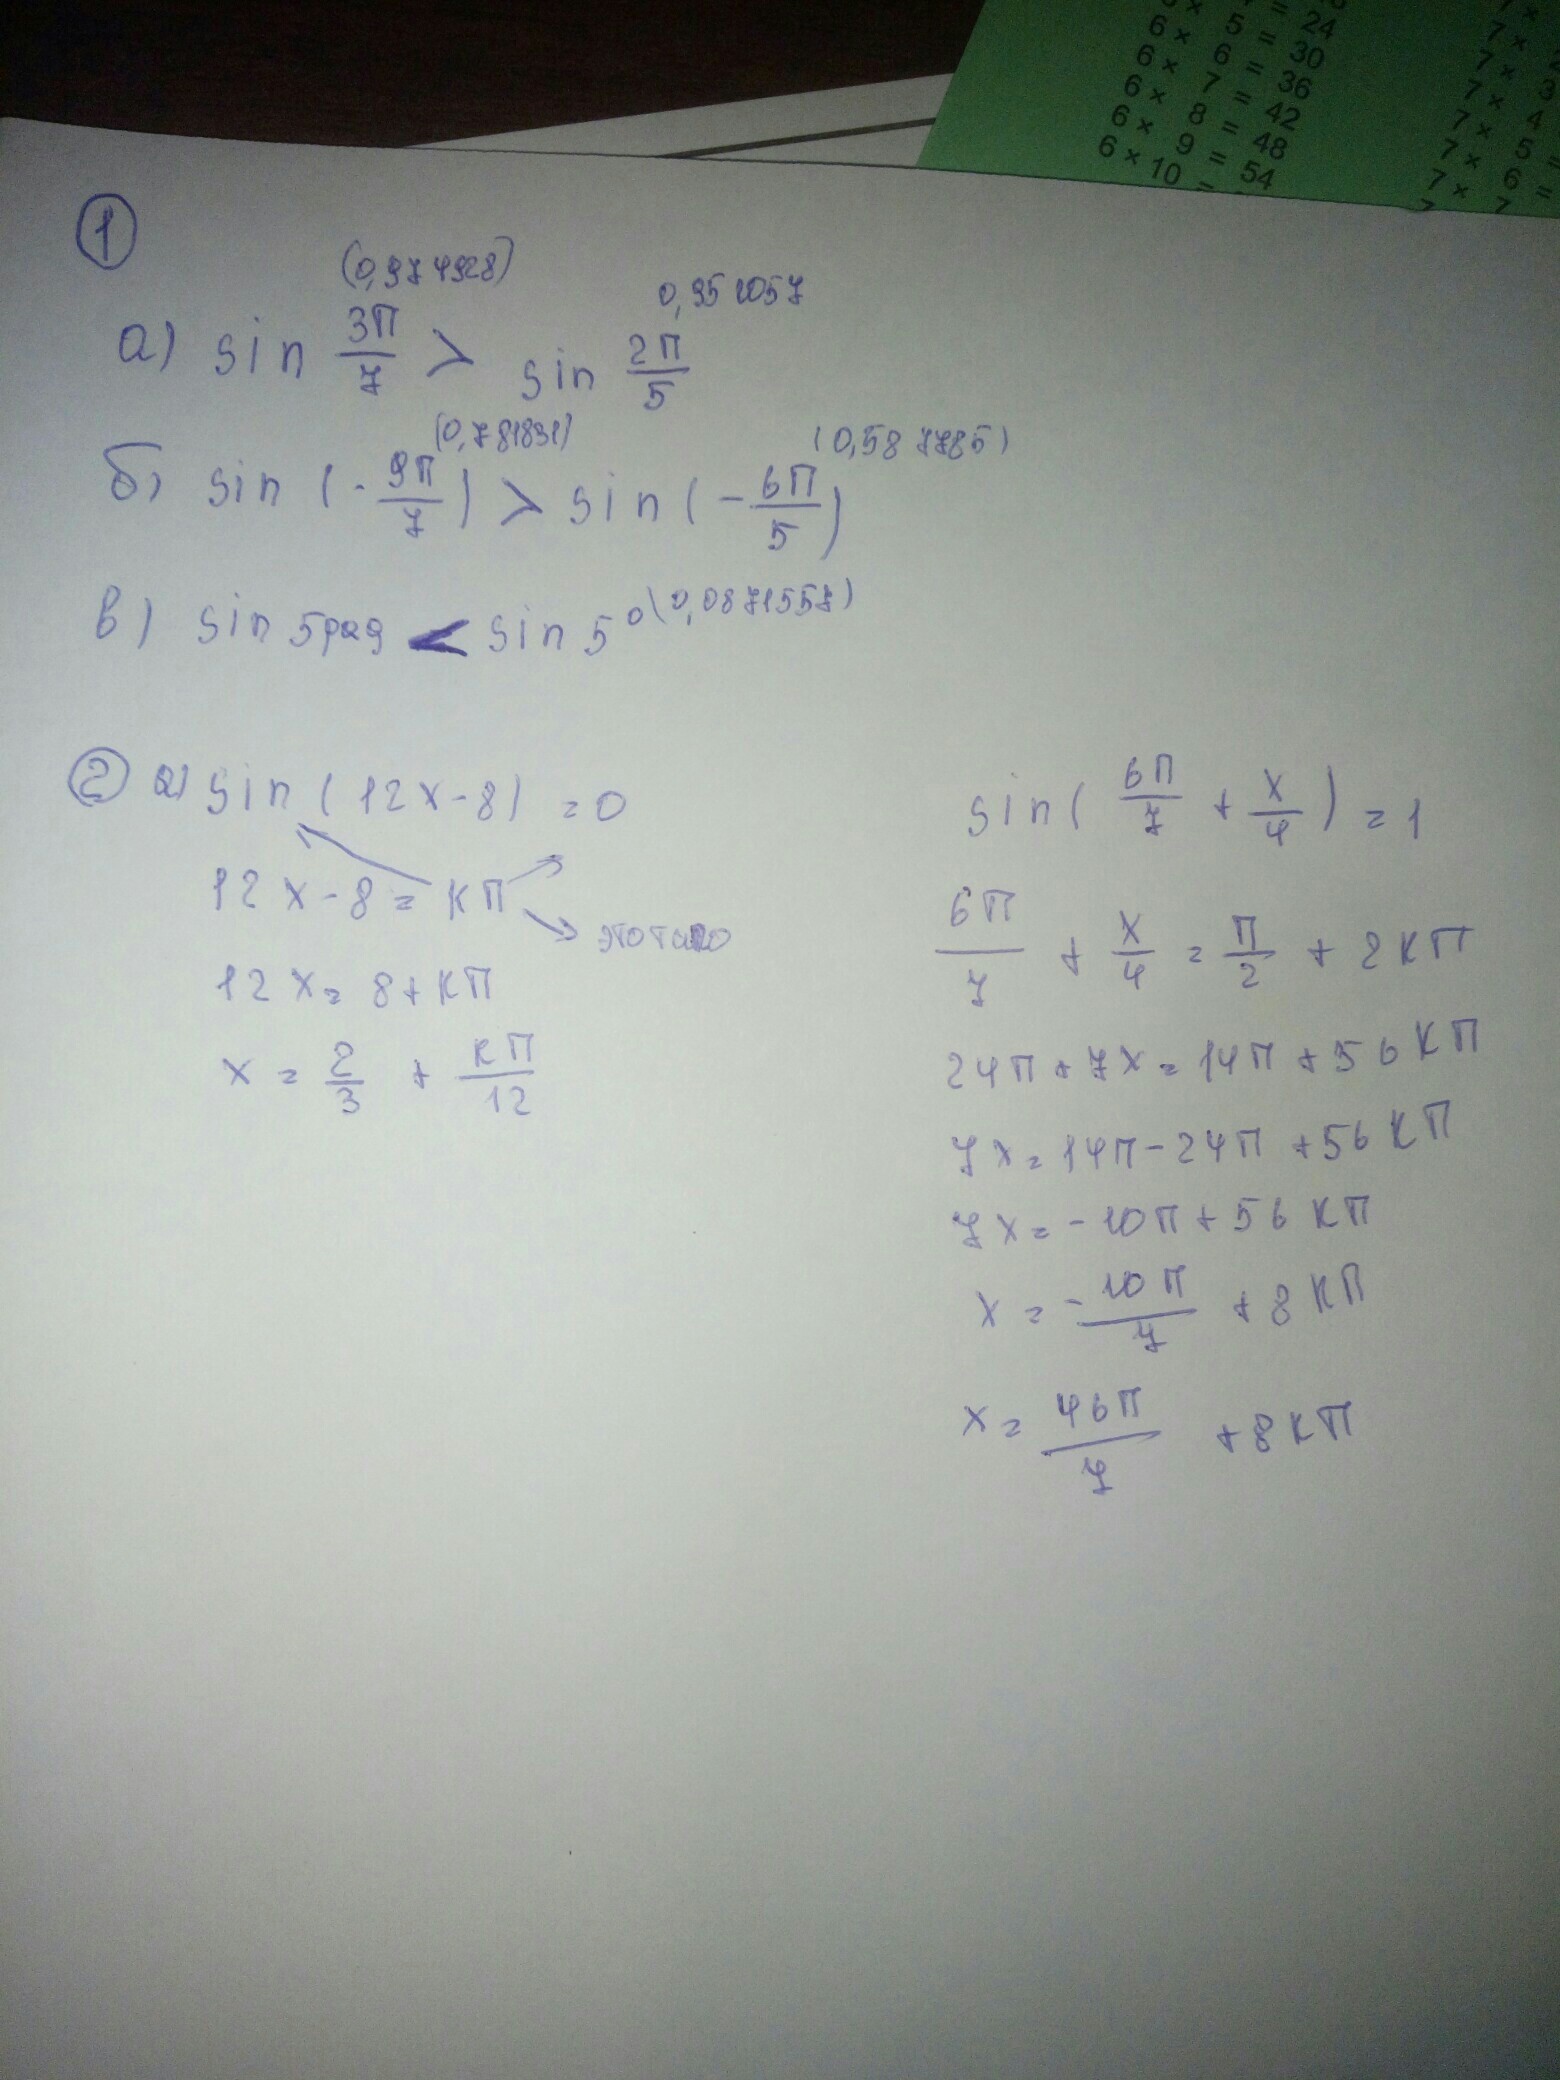 5 = 24
6 × 6 = 30
6 × 7 = 36
6 × 8 = 42
6 × 9 = 48
6 × 10 = 54
7 ×
7 × 3
7 × 4
7 × 5 =
7 × 6 =
7 × 7
①
(0,974928) 0,951057
а) sin 3П/7 > sin 2П/5
(0,781831) (0,587785)
б) sin (-9П/7) > sin (-6П/5)
в) sin 5рад < sin 5° (0,0871557)
② а) sin (12x-8) = 0
12x-8 = КП
12x = 8+КП
x = 2/3 + КП/12
sin (6П/7 + x/4) = 1
6П/7 + x/4 = П/2 + 2КП
24П + 7x = 14П + 56КП
7x = 14П - 24П + 56КП
7x = -10П + 56КП
x = -10П/7 + 8КП
x = 46П/7 + 8КП